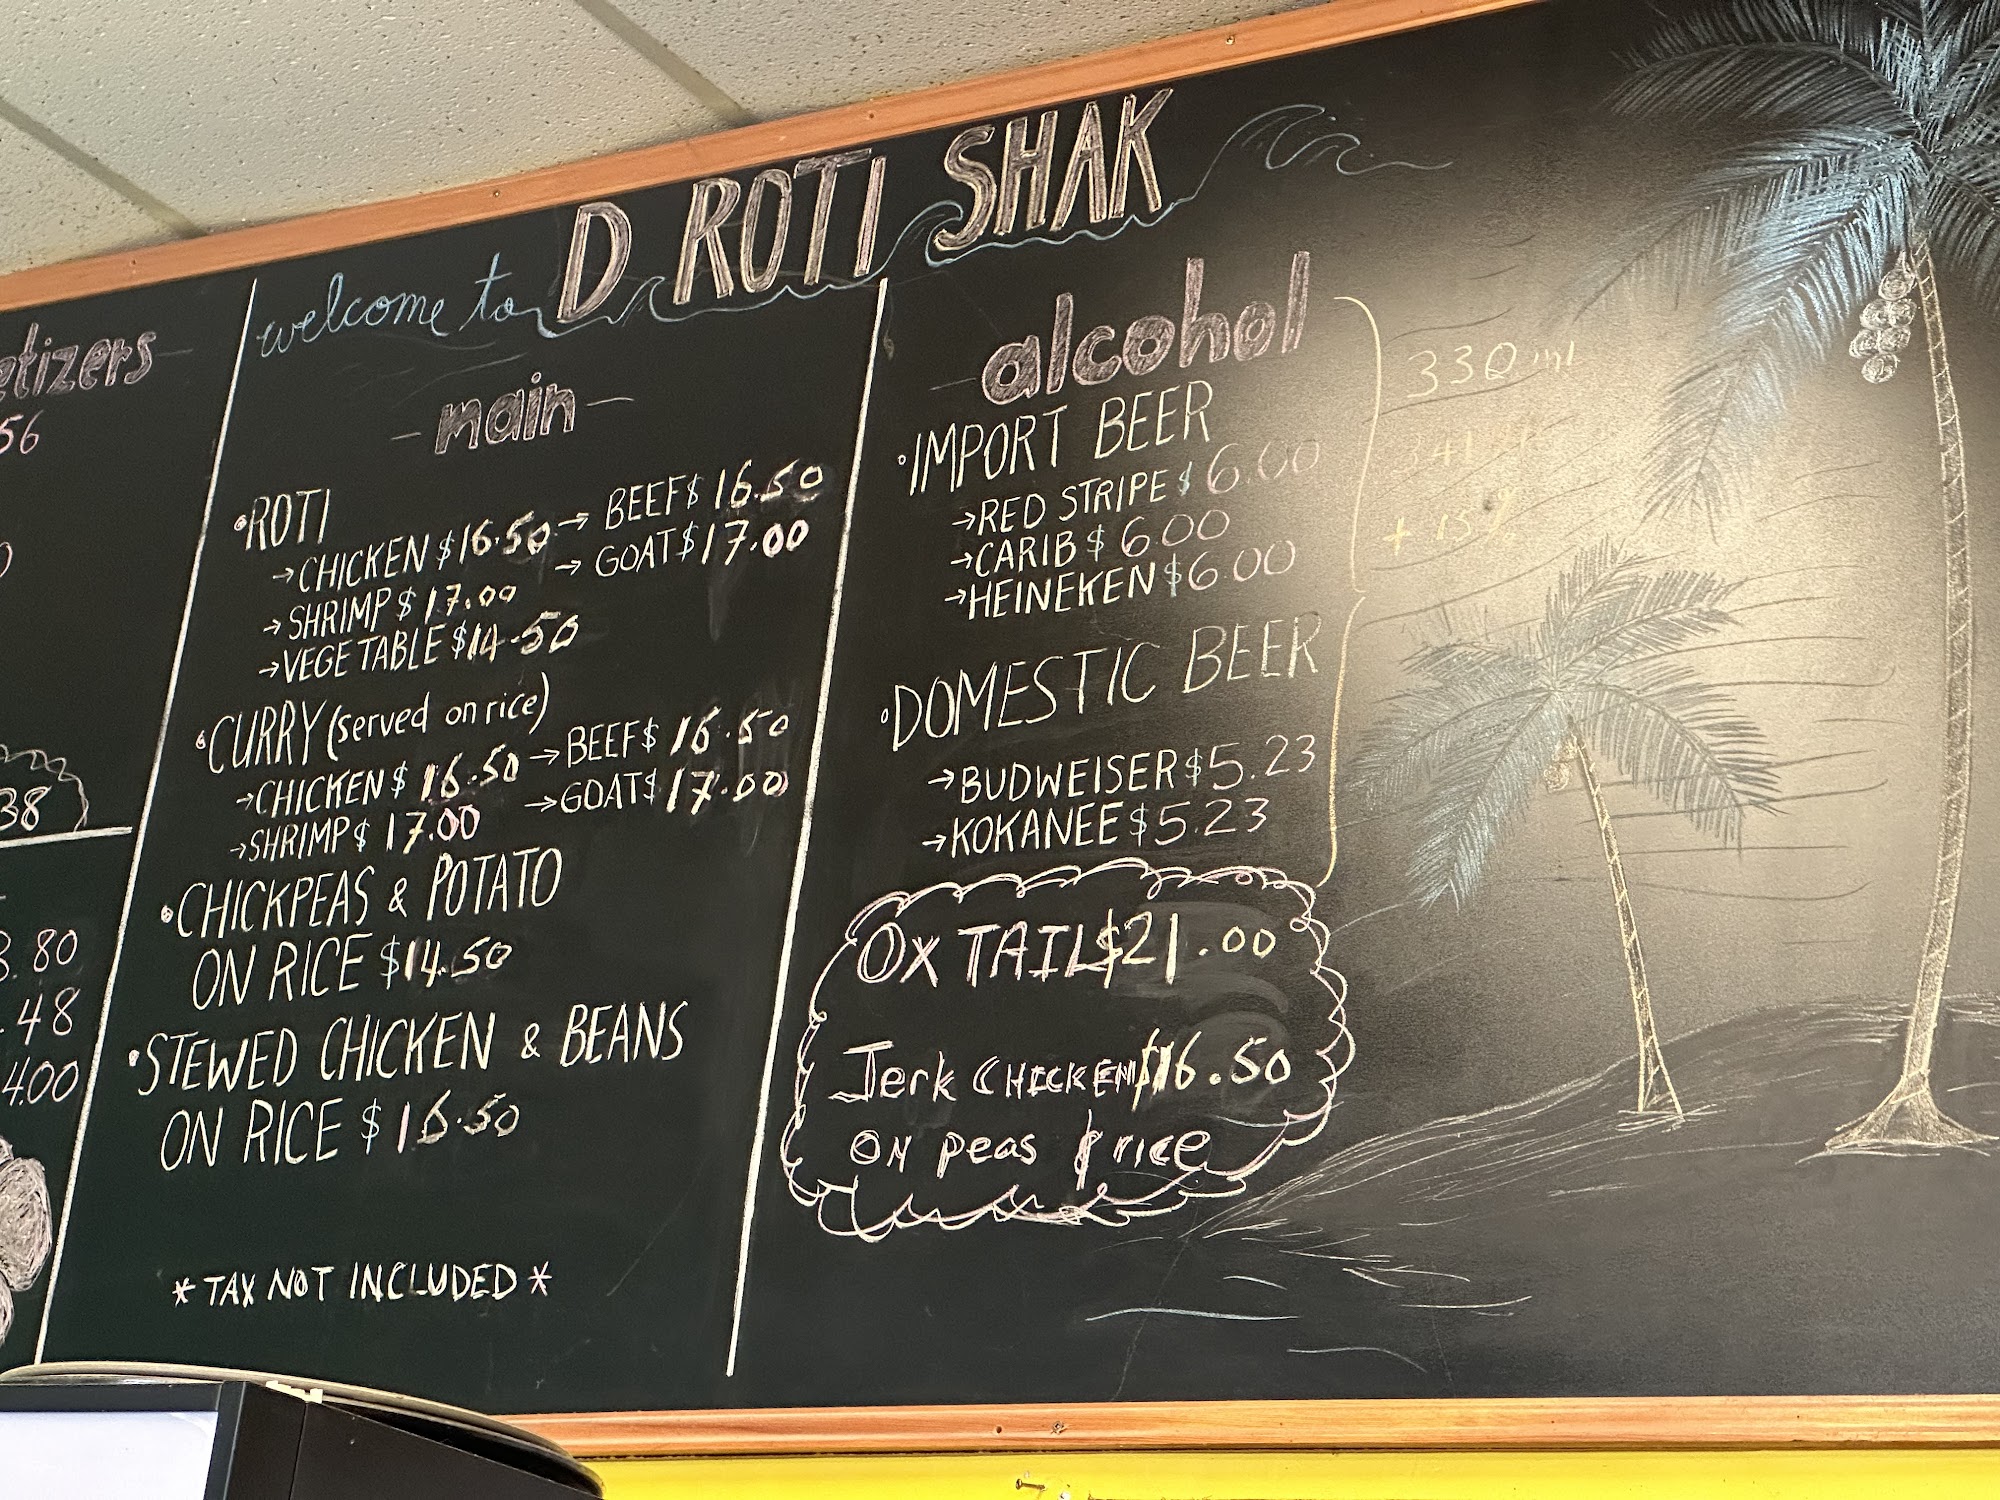 welcome to D ROTI SHAK
etizers
56
38
.80
.48
4.00
- main -
• ROTI
→ CHICKEN $16.50 → BEEF $16.50
→ SHRIMP $17.00 → GOAT $17.00
→ VEGETABLE $14.50
• CURRY (served on rice)
→ CHICKEN $16.50 → BEEF $16.50
→ SHRIMP $17.00 → GOAT $17.00
• CHICKPEAS & POTATO
ON RICE $14.50
• STEWED CHICKEN & BEANS
ON RICE $16.50
* TAX NOT INCLUDED *
- alcohol
• IMPORT BEER
→ RED STRIPE $6.00
→ CARIB $6.00
→ HEINEKEN $6.00
• DOMESTIC BEER
→ BUDWEISER $5.23
→ KOKANEE $5.23
330 ml
341
+ 15%
OX TAIL $21.00
Jerk CHICKEN $16.50
ON peas & rice